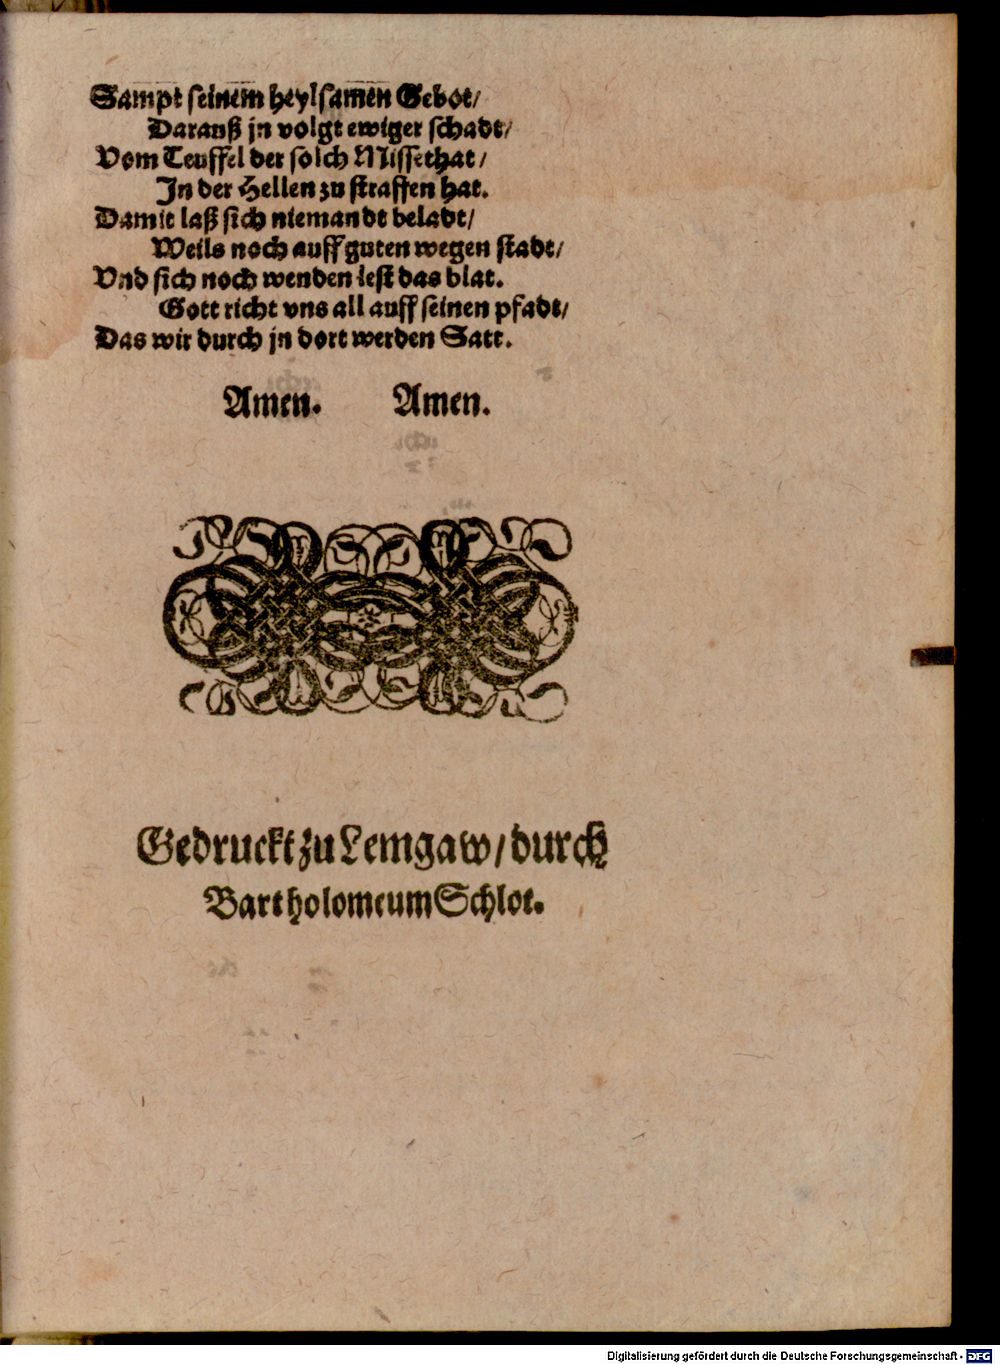 Sampt seinem heylsamen Gebot/
Darauß jn volgt ewiger schadt/
Vom Teuffel der solch Missethat/
In der Hellen zu straffen hat.
Damit laß sich niemandt beladt/
Weils noch auff guten wegen stadt/
Vnd sich noch wenden lest das blat.
Gott richt vns all auff seinen pfadt/
Das wir durch jn dort werden Satt.
Amen. Amen.
Gedruckt zu Lemgaw/durch
Bartholomeum Schlot.
Digitalisierung gefördert durch die Deutsche Forschungsgemeinschaft - DFG